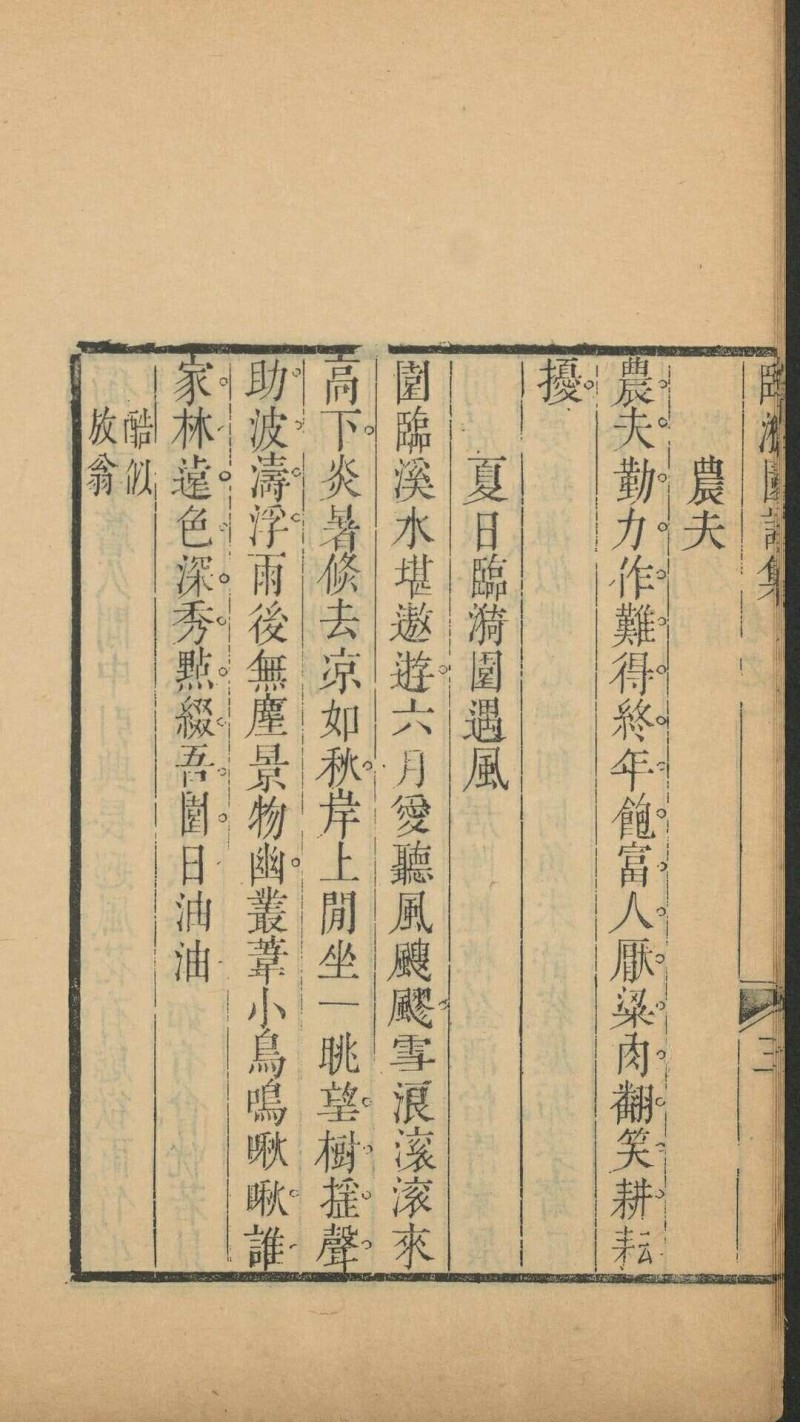 臨漪園詩集
三
農夫
農夫勤力作難得終年飽富人厭粱肉翻笑耕耘
擾
夏日臨漪園遇風
園臨溪水堪遨遊六月愛聽風颼飂雪浪滚滚來
高下炎暑倏去凉如秋岸上閒坐一眺望樹摇聲
助波濤浮雨後無塵景物幽叢葦小鳥鳴啾啾誰
家林遠色深秀點綴吾園日油油
酷似
放翁